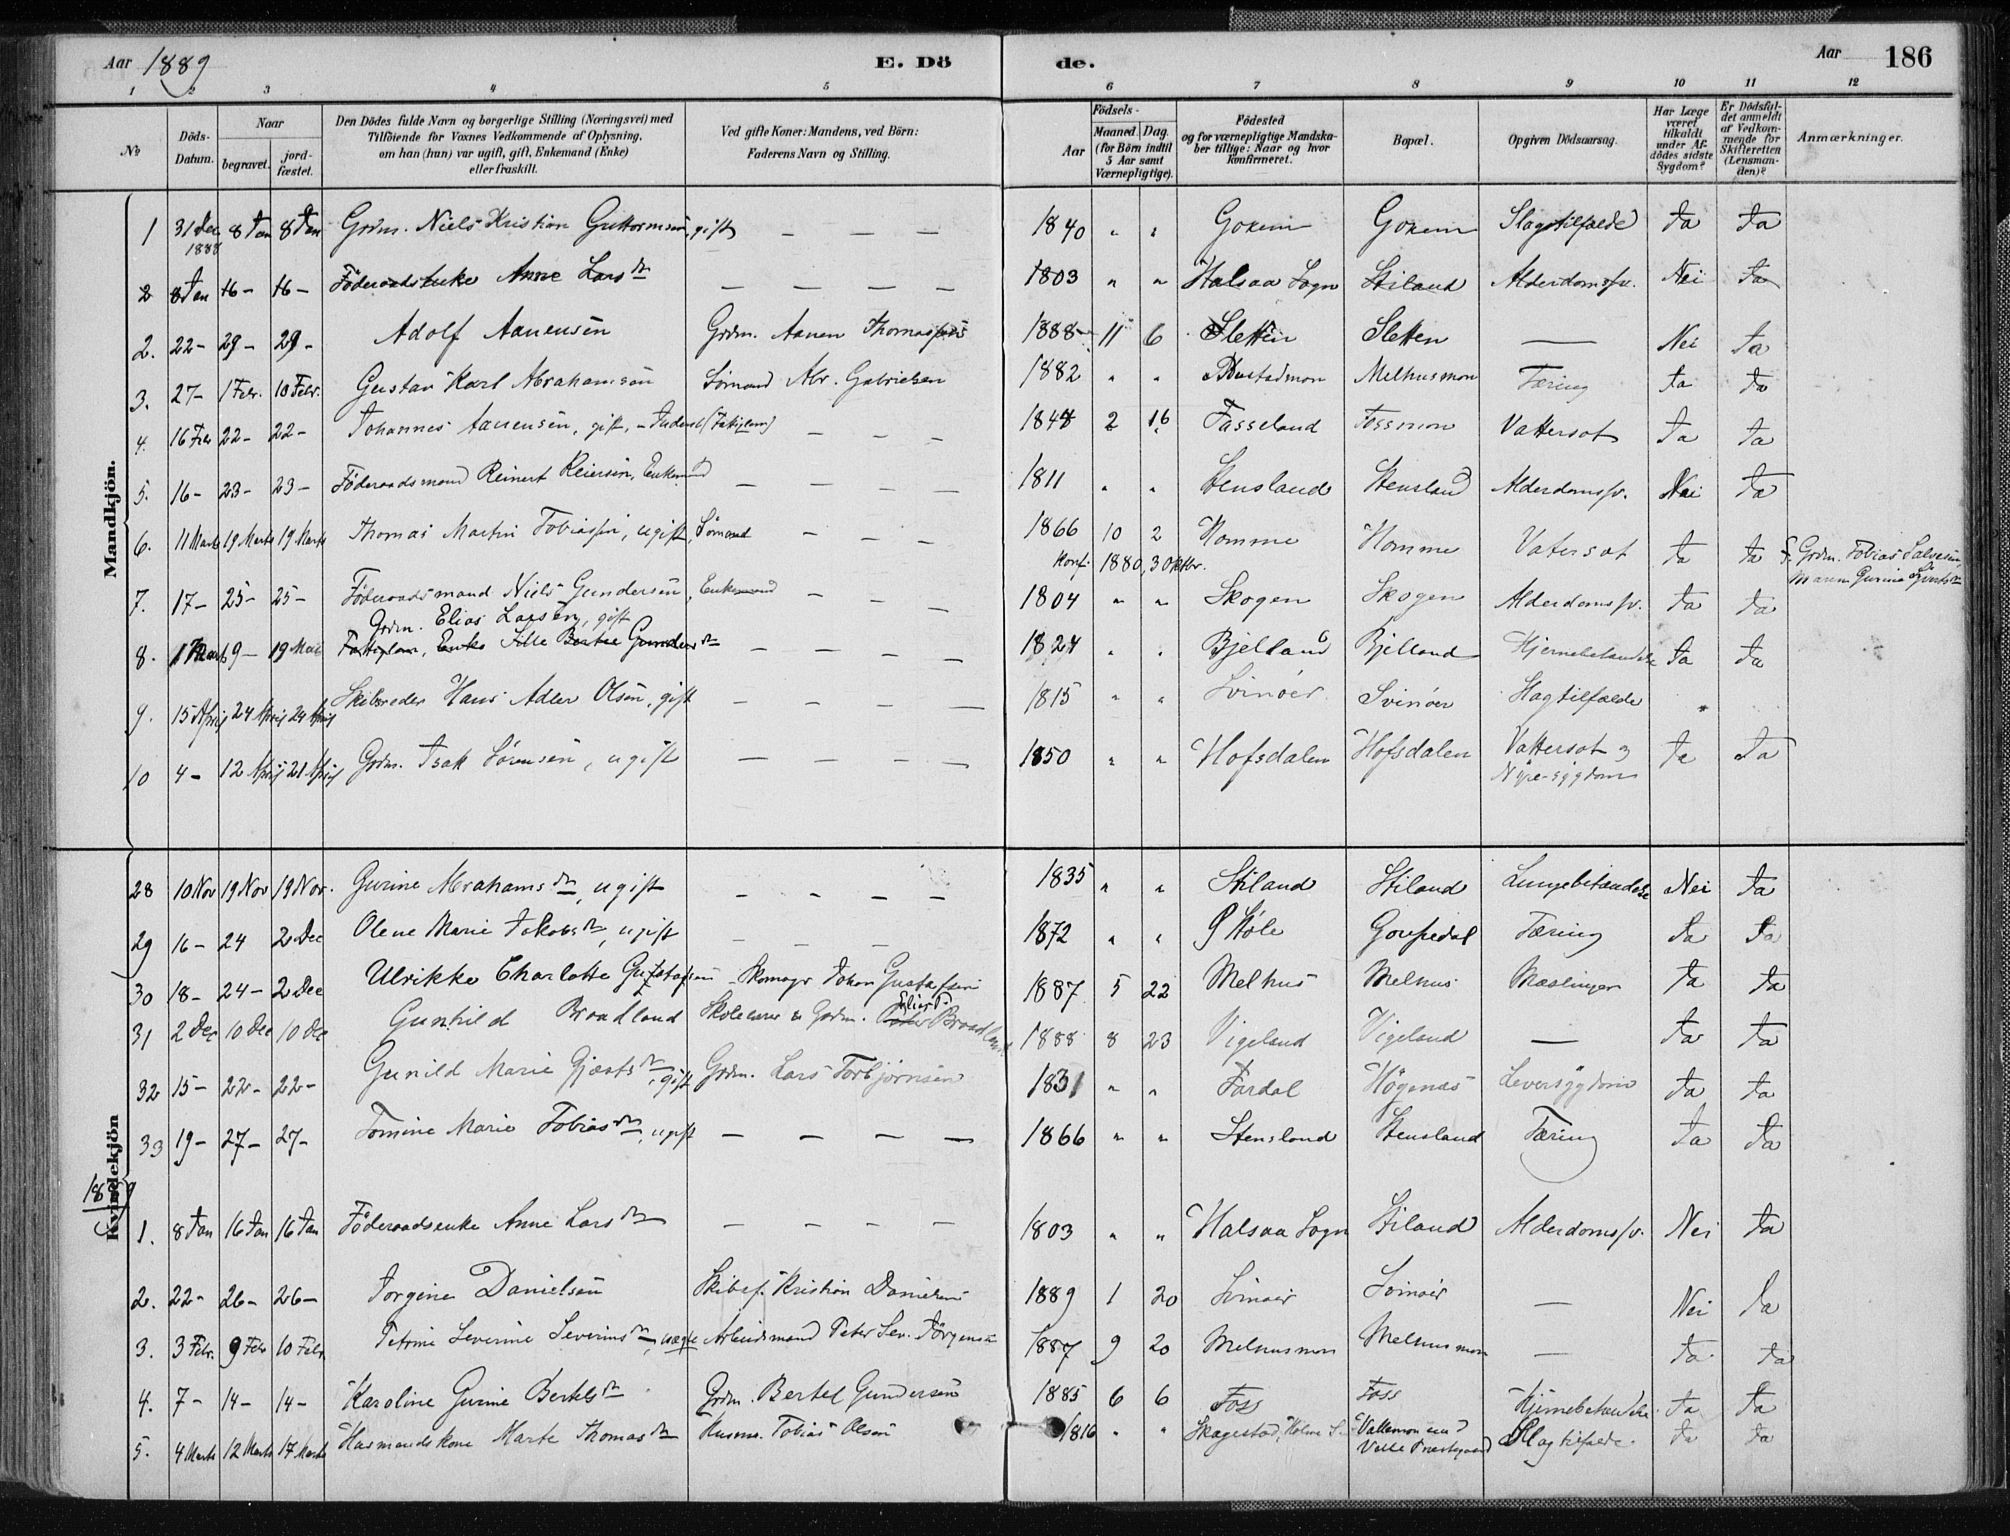 Aar 1889 E. Dö de. Aar 186
1 2 3 4 5 6 7 8 9 10 11 12
No Döds-Datum. Naar begravet. jord-fæstet. Den Dödes fulde Navn og borgerlige Stilling (Næringsvei) med Tilföiende for Voxnes Vedkommende af Oplysning, om han (hun) var ugift, gift, Enkemand (Enke) eller fraskilt. Ved gifte Koner: Mandens, ved Börn: Faderens Navn og Stilling. Aar Födsels- Maaned. Dag. (for Börn indtil 5 Aar samt Værnepligtige). Födested og for værnepligtige Mandskaber tillige: Naar og hvor Konfirmeret. Bopæl. Opgiven Dödsaarsag. Har Læge været tilkaldt under Afdödes sidste Sygdom? Er Dödsfaldet anmeldt af Vedkommende for Skifteretten (Lensmanden)? Anmærkninger.
Mandkjön.
1 31 Dec 1888 8 Jan 8 Jan Grdm. Niels Kristian Guttormsen, gift — — — 1840 " " Goxem Goxem Slagtilfælde Ja Ja
2 8 Jan 16 - 16 - Föderaadsenke Anne Larsdtr — — — — 1803 " " Halsaa Sogn Stiland Alderdomssv. Nei Ja
2. 22 - 29 - 29 - Adolf Aanensen Grdm. Aanen Thomassen 1888 11 6 Sletten Sletten — Nei Ja
3. 27 - 1 Febr. 10 Febr. Gustav Karl Abrahamsen Sömand Abr. Gabrielsen 1882 " " Melhusmon Tæring Ja Ja
4. 16 Febr 22 - 22 - Johannes Aanensen, gift, - Inderst (Fatiglem) — — — 1848 2 16 Fasseland Fossmon Vattersot Ja Ja
5. 16 - 23 - 23 - Föderaadsmand Reinert Reiersen, Enkemand — — — — 1811 " " Stensland Stensland Alderdomssv. Nei Ja
6. 11 Marts 19 Marts 19 Marts Thomas Martin Tobiassen, ugift, Sömand — — — 1866 10 2 Homme Homme Vatersot Ja Ja F. Grdm. Tobias Salvesen
Konf. 1880, 3 Oktbr. Maren Gurine
7. 17 - 25 - 25 - Föderaadsmand Niels Gundersen, Enkemand — — — 1804 " " Skogen Skogen Alderdomssv. Ja Ja
Grdm. Elias Larsen, gift
8. 1 Marts 9 - 19 Mai Fattiglem, Enke Sille Bertee Gundersdtr — — — — 1824 " " Bjelland Bjelland Hjernebetændelse Ja Ja
9. 15 April 24 April 24 April Skibsreder Hans Adler Olsen, gift — — — — 1815 " " Svinöer Svinöer Slagtilfælde
10 4 - 12 April 21 April Grdm. Isak Sörensen, ugift — — — — 1850 " " Hofsdalen Hofsdalen Vattersot og Ja Ja
Nyre-sygdom
Kvindekjön
28 10 Nov 19 Nov 19 Nov. Gurine Abrahamsdtr, ugift — — — — 1835 " " Stiland Stiland Lungebetændelse Nei Ja
29 16 - 24 2 Dec Olene Marie Jakobsdtr, ugift — — — 1872 " " Tæring Ja Ja
30 18 - 24 - 2 Dec Ulrikke Charlotte Gustafsen Skomagr Johan Gustafsen 1887 5 22 Melhus Melhus Mæslinger Ja Ja
31 2 Dec 10 Dec 10 Dec Gunhild Braadland Grdm. Braadland 1888 8 23 Vigeland Vigeland — Ja Ja
32 15 - 22 - 22 - Gunild Marie Gjærtsdtr, gift Grdm. Lars Torbjörnsen 1831 " " Fardal Högenæs Leversygdom Ja Ja
33 19 - 27 - 27 - Tomine Marie Tobiasdtr, ugift — — — — 1866 " " Stensland Stensland Tæring Ja Ja
1889
1. 8 Jan 16 Jan 16 Jan Föderaadsenke Anne Larsdtr — — — — 1803 " " Halsaa Sogn Stiland Alderdomssv. Nei Ja
2. 22 - 26 - 26 - Jorgine Danielsen Skibsf. Kristian Danielsen 1889 1 20 Svinöer Svinöer — Nei Ja
3. 3 Febr. 9 Febr 10 Febr. Petrine Severine Severinsdtr, uægte Arbeidsmand Peter Sev. Jörgensen 1887 9 20 Melhusmon Melhusmon — Ja Ja
4. 7 - 14 - 14 - Karoline Gurine Bertelsdtr Grdm. Bertel Gundersen 1885 6 6 Foss Foss Hjernebetændelse Ja Ja
5. 4 Marts 12 Marts 17 Marts Husmandskone Marte Thomasdtr Husm. Tobias Olsen 1816 " " Skagestad, Holme S. Vallemon Slagtilfælde Ja Ja
Valle Præstegaard